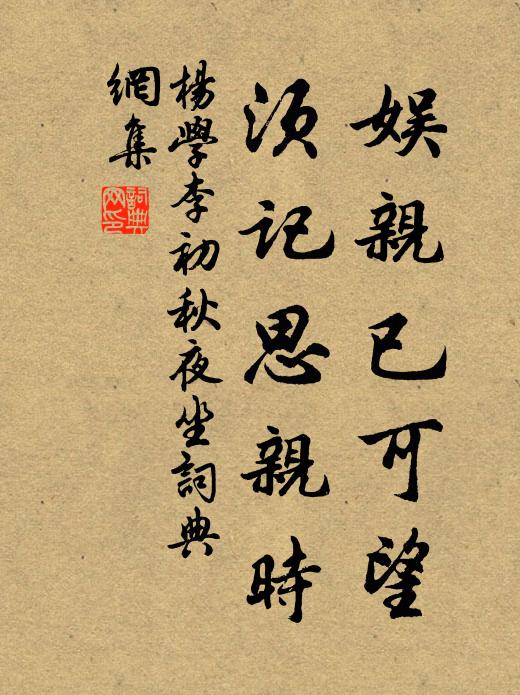 娛親已可望
須記思親時
楊學李初秋夜坐詞典
網集
詞典網印